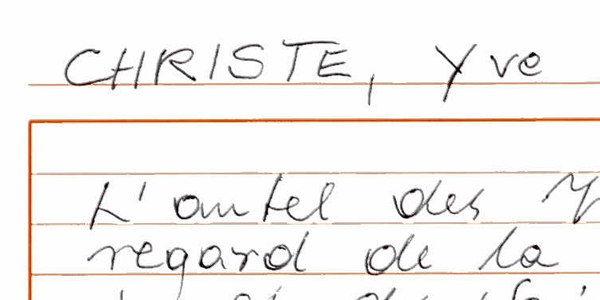 CHRISTE, Yve
L'autel des
regard de la